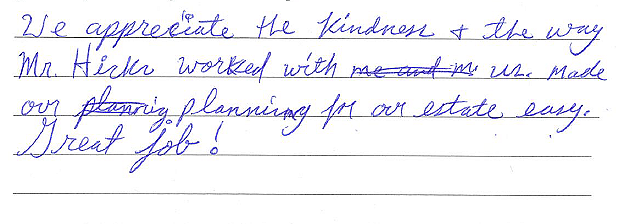 We appreciate the kindness + the way
Mr. Hicks worked with me and m us. Made
our planning planning for our estate easy.
Great Job!